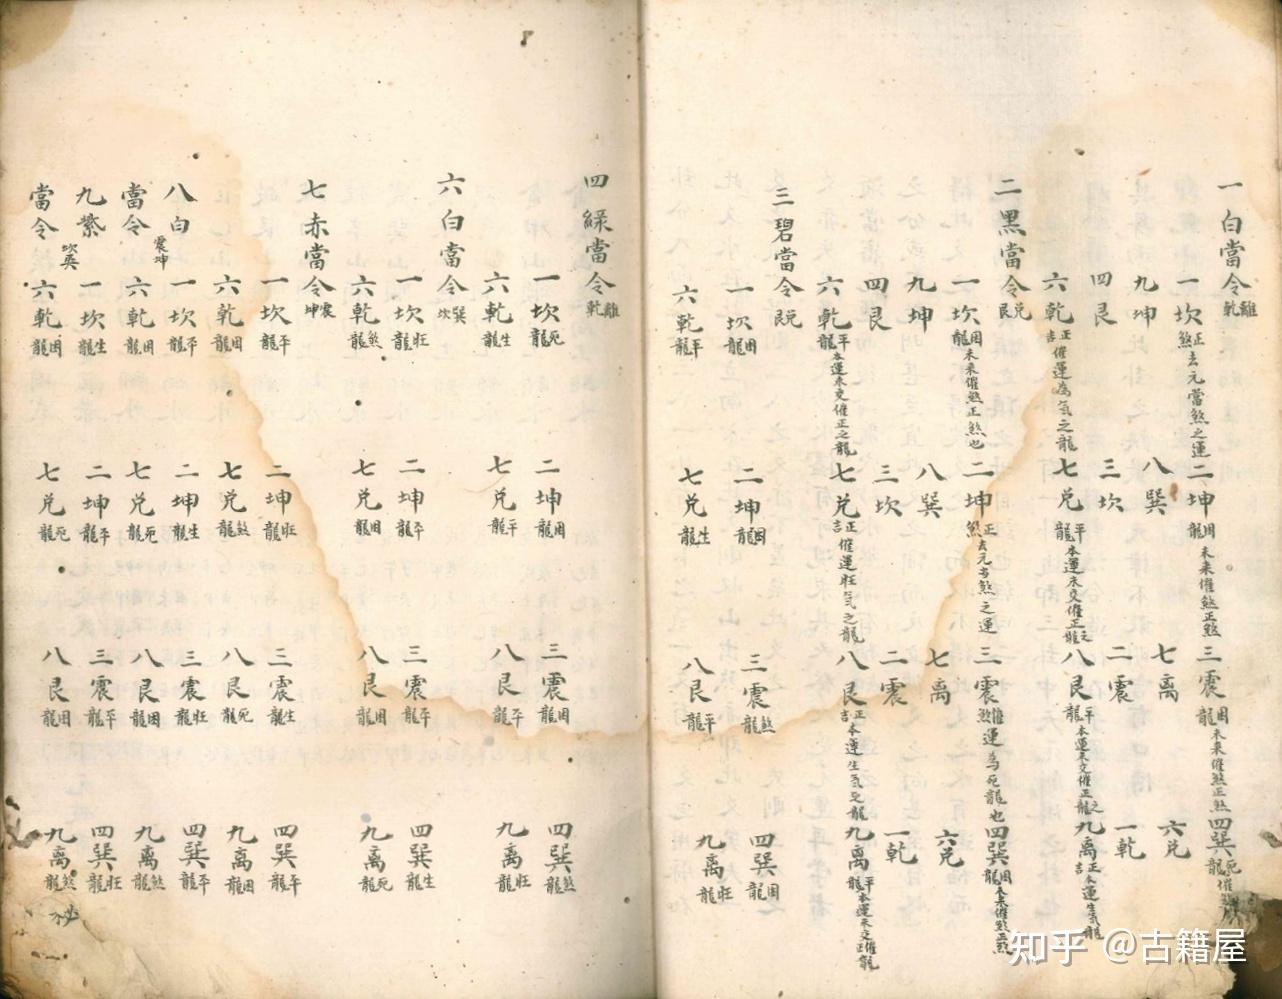 一白當令離乾
一坎正煞去元當煞之運二坤困龍未來催煞正煞三震困龍未來催煞正煞四巽死龍催煞
九坤八巽七離六兌
四艮三坎二震一乾
六乾正吉催運為氣之龍七兌平龍本運未交催正之龍八艮平龍本運未交催正之龍九離正吉本運生氣龍
二黑當令兌艮
一坎困龍未來催煞正煞也二坤正煞去元當煞之運三震催煞運為死龍也四巽困龍未來催煞正煞
九坤八巽七離六兌
四艮三坎二震一乾
六乾平龍本運未交催正之龍七兌正吉催運旺氣之龍八艮正吉本運生氣之龍九離平龍本運未交催正龍
三碧當令兌艮
一坎困龍二坤困龍三震煞龍四巽困龍
六乾平龍七兌生龍八艮平龍九離旺龍
四綠當令離乾
一坎死龍二坤困龍三震困龍四巽煞龍
六乾生龍七兌平龍八艮平龍九離旺龍
六白當令巽坎
一坎旺龍二坤平龍三震平龍四巽生龍
六乾煞龍七兌困龍八艮困龍九離死龍
七赤當令震坤
一坎平龍二坤旺龍三震生龍四巽平龍
六乾困龍七兌煞龍八艮死龍九離困龍
八白當令震坤
一坎平龍二坤生龍三震旺龍四巽平龍
六乾困龍七兌死龍八艮困龍九離煞龍
九紫當令坎巽
一坎生龍二坤平龍三震平龍四巽旺龍
六乾困龍七兌死龍八艮困龍九離煞龍
知乎 @古籍屋